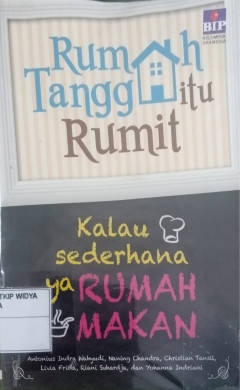 BIP
KELOMPOK GRAMEDIA
Rumah
Tangga itu
Rumit
Kalau
sederhana
ya RUMAH
MAKAN
TKIP WIDYA
A
Antonius Indra Wahyudi, Naning Chandra, Christian Tansil,
Livia Frida, Riani Suhardja, dan Yohanna Indriani